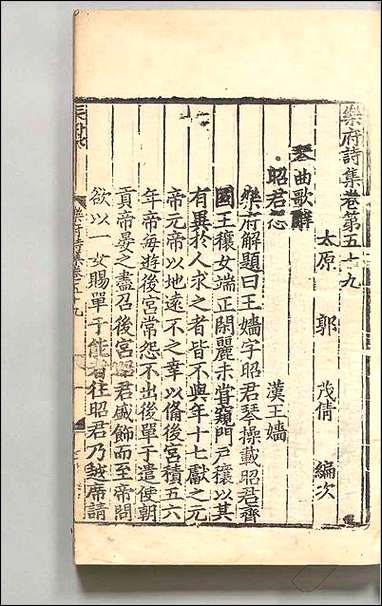 樂府詩集卷第五十九
太原 郭 茂倩 編次
琴曲歌辭
昭君怨 漢王嬙
樂府解題曰王嬙字昭君琴操載昭君齊
國王穰女端正閑麗未嘗窺門戶穰以其
有異於人求之者皆不與年十七獻之元
帝元帝以地遠不之幸以備後宮積五六
年帝每遊後宮常怨不出後單于遣使朝
貢帝宴之盡召後宮昭君盛飾而至帝問
欲以一女賜單于能者往昭君乃越席請
樂府詩集卷五十九